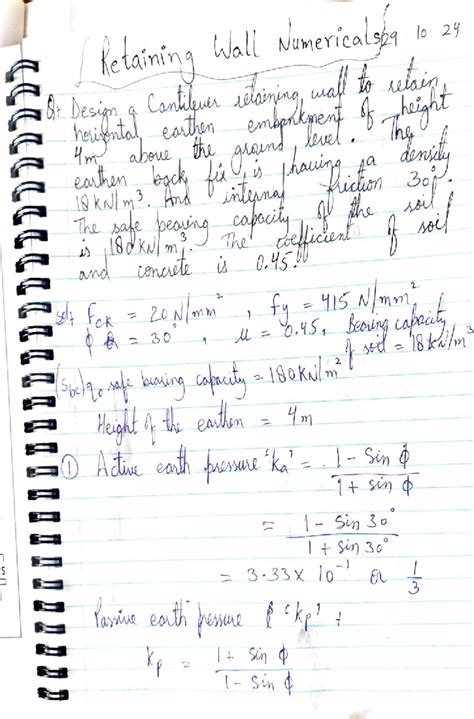 Retaining Wall Numericals 29 10 24
Q: Design a Cantilever retaining wall to retain
horizontal earthen embankment of height
4m above the ground level. The
earthen back fix is having a density
18 kN/m³. And internal friction 30°.
The safe bearing capacity of the soil
is 180 kN/m³. The coefficient of soil
and concrete is 0.45.
sol: Fck = 20 N/mm², fy = 415 N/mm²
ϕ = 30°, μ = 0.45, Bearing capacity
of soil = 18 kN/m³
(Sbc) q₀ safe bearing capacity = 180 kN/m²
Height of the earthen = 4m
① Active earth pressure 'ka' = 1 - Sin ϕ
1 + sin ϕ
= 1 - Sin 30°
1 + Sin 30°
= 3.33 x 10⁻¹ or 1/3
Passive earth pressure 'kp' :
kp = 1 + Sin ϕ
1 - Sin ϕ